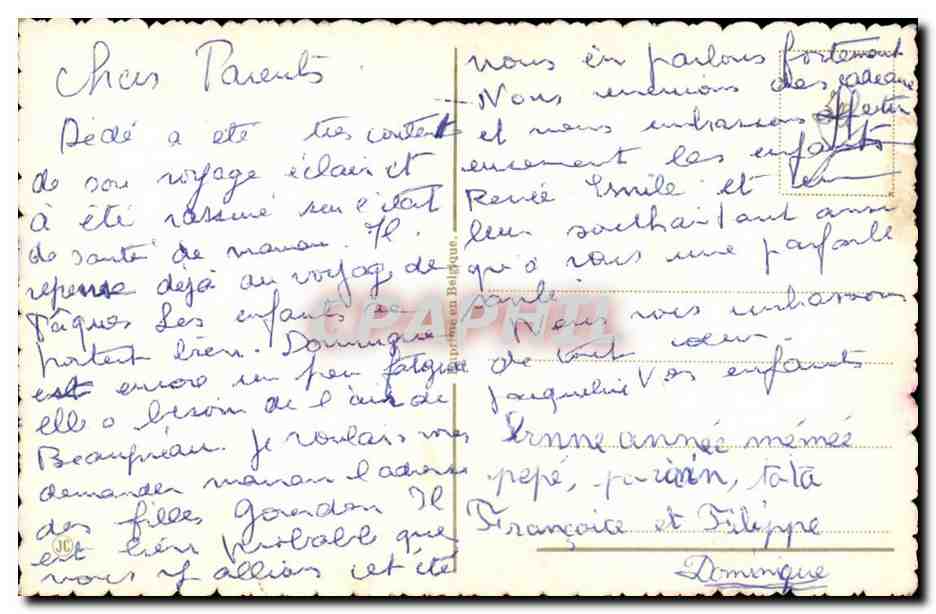 Chers Parents
Dédé a été très content
de son voyage éclair et
à été rassuré sur l'état
de santé de maman. Il
repense déjà au voyage de
Pâques Les enfants se
portent bien. Dominique
est encore un peu fatigué
elle a besoin de l'air de
Beaupréau. Je voulais vous
demander maman l'adresse
des filles Gourdon Il
est bien probable que
nous y allions cet été
nous en parlons fortement
Nous des cadeaux
et nous embrassons affectu
eusement les enfants
Renée Emile et
leur souhaitant ainsi
qu'à vous une parfaite
santé.
Nous vous embrassons
de tout coeur.
Jacqueline Vos enfants
bonne année mémée
pépé, parain, tata
Françoice et Filippe
Dominique
Imprimé en Belgique.
JC
CPAPHIL